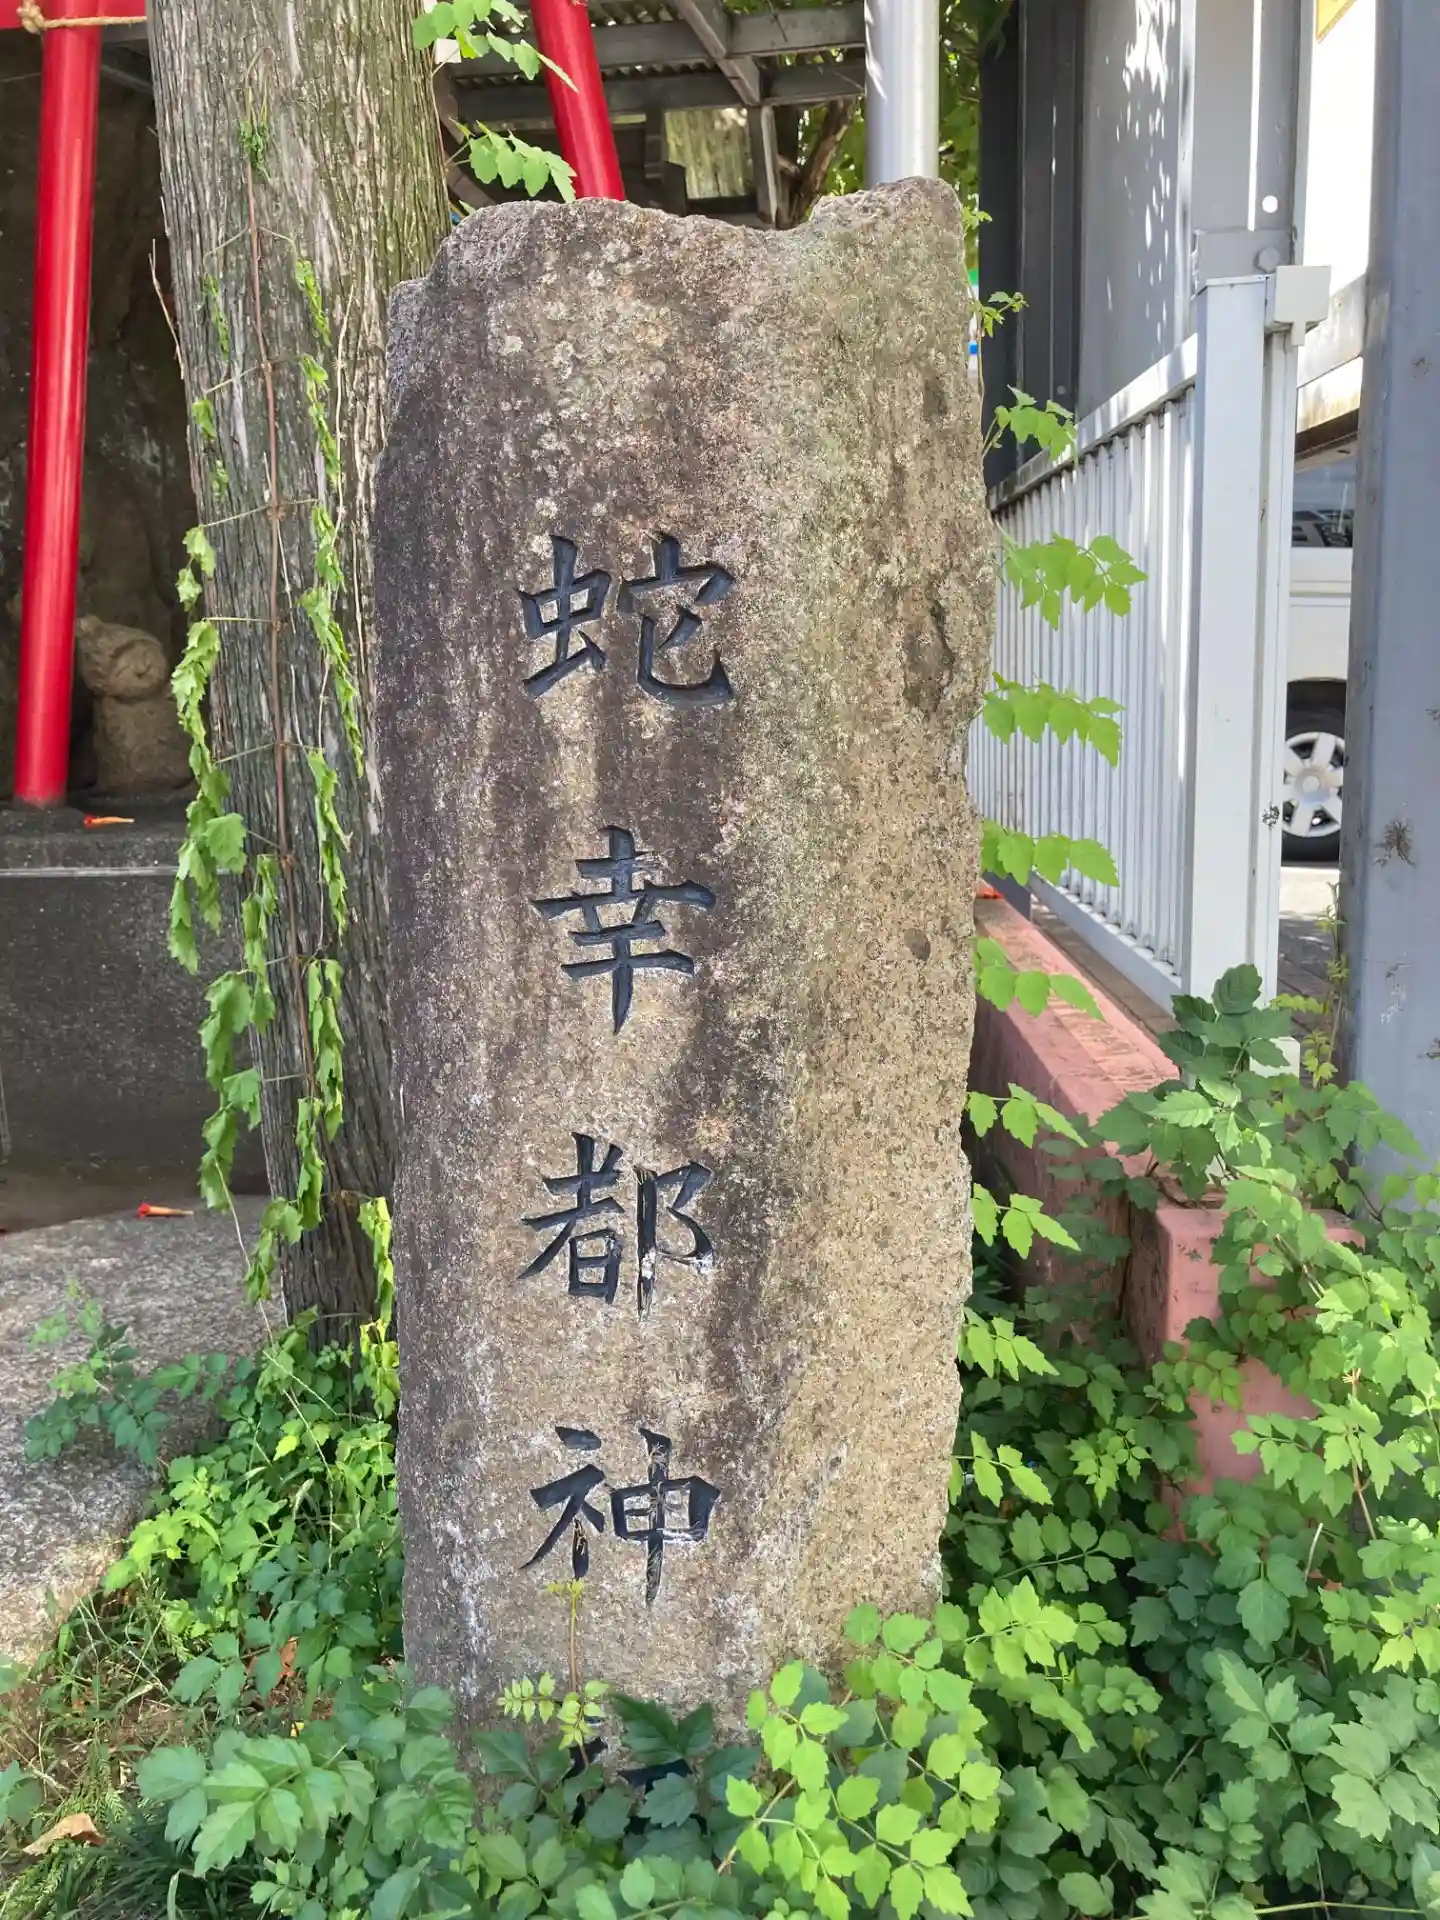 蛇幸都神